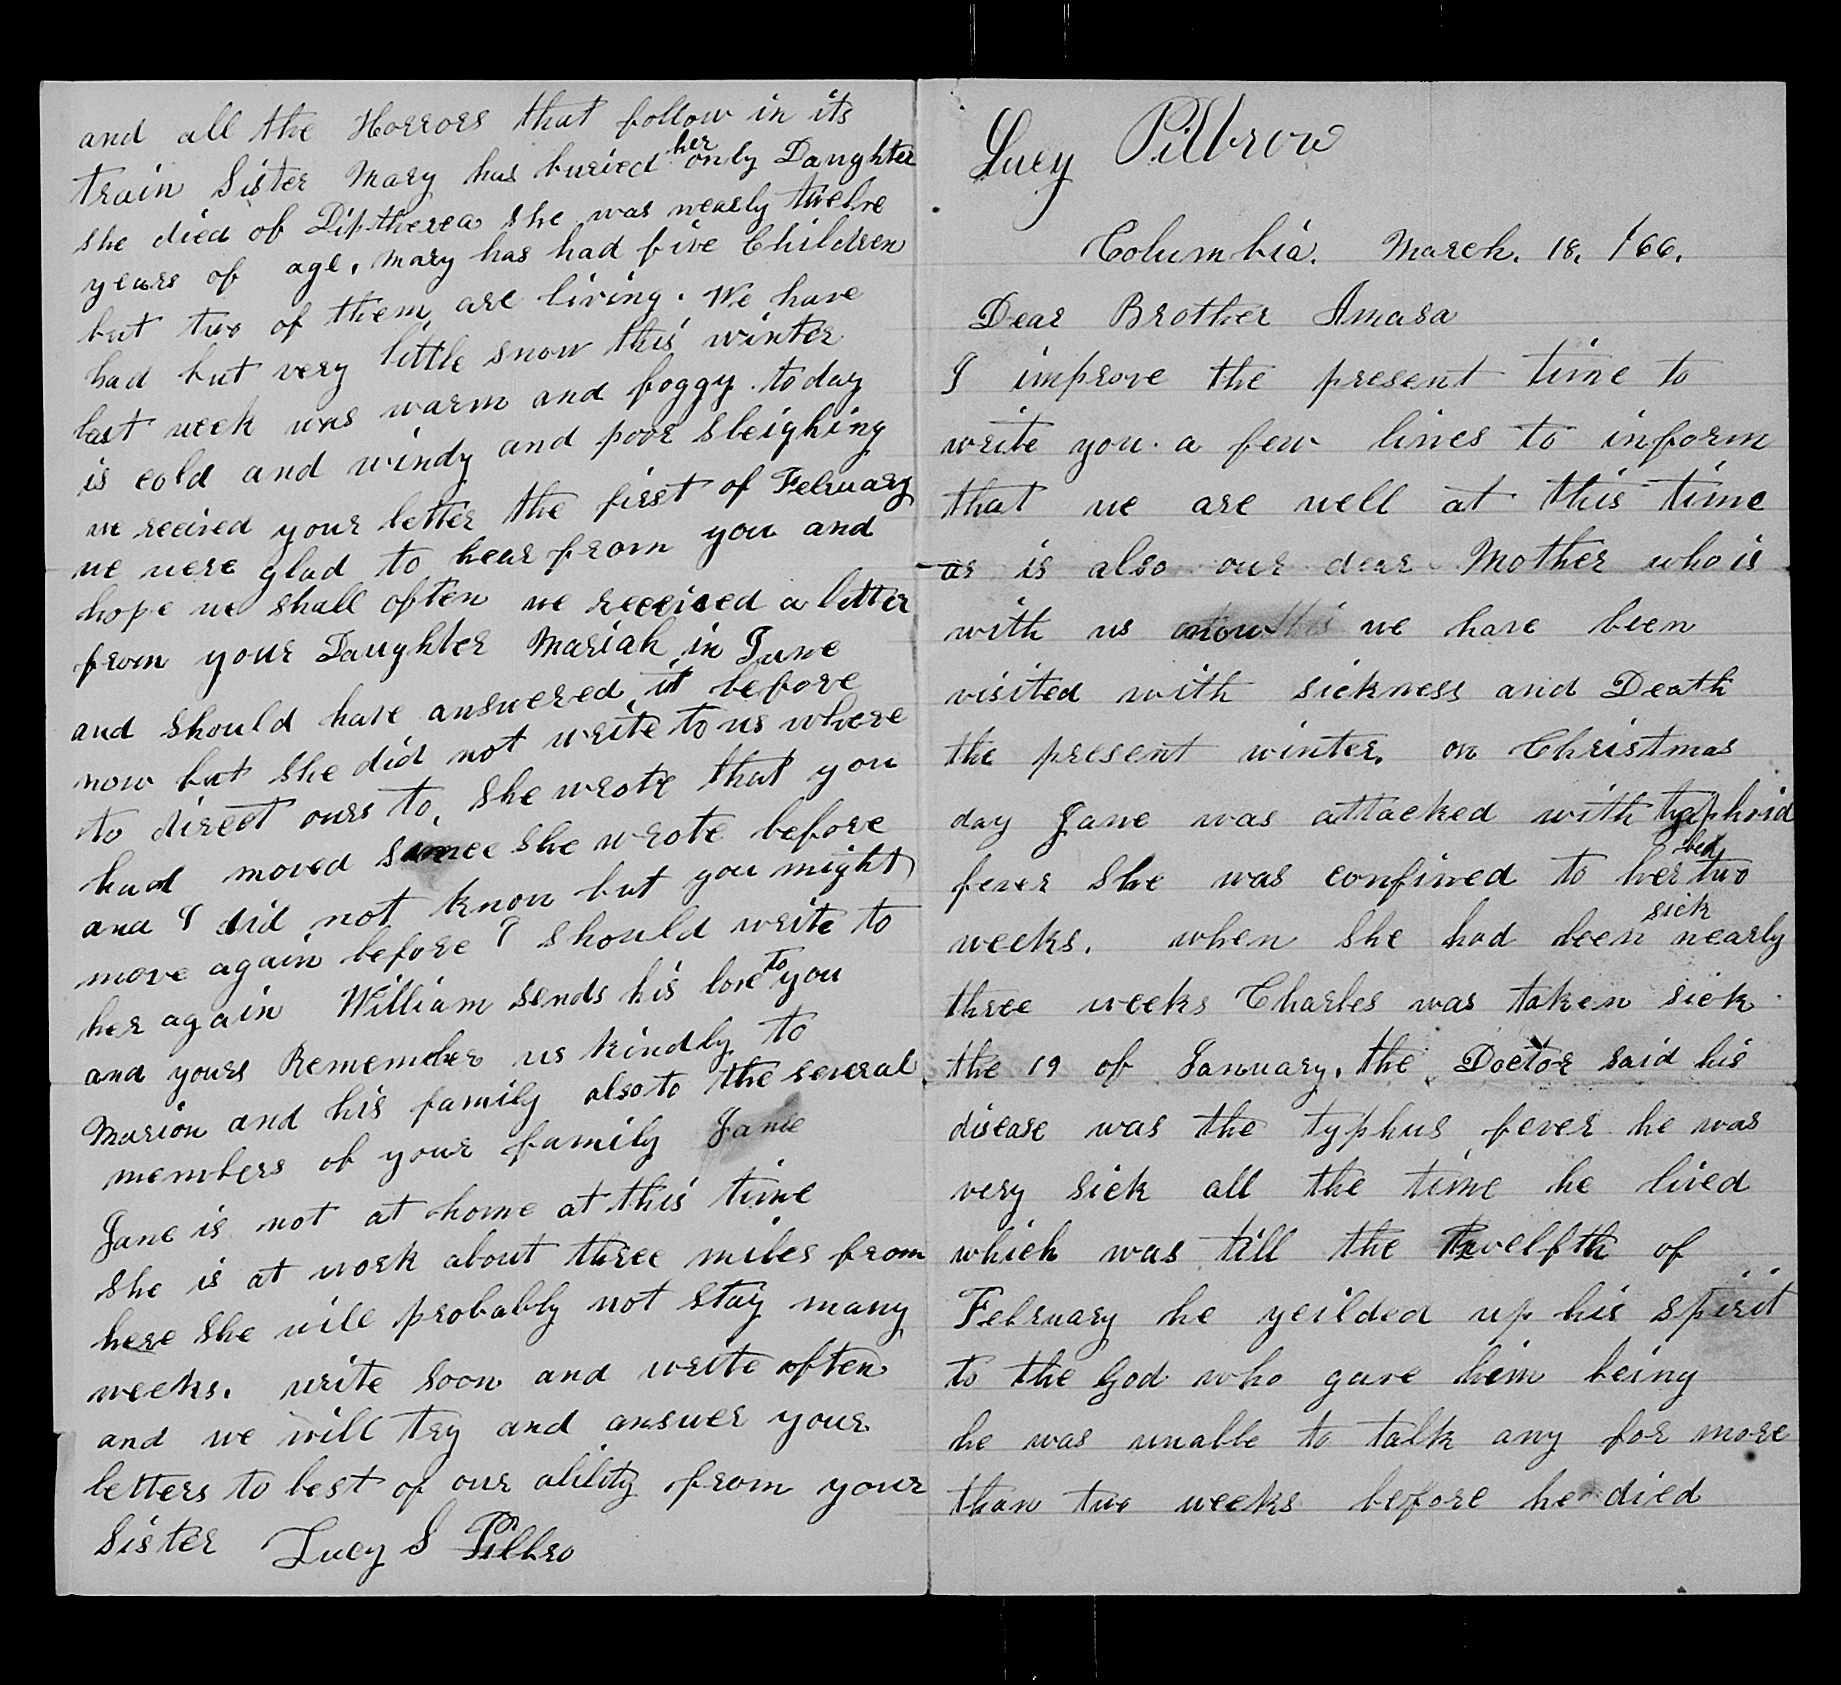 Lucy Pillbrow
Columbia. March. 18. /66.
Dear Brother Amasa
I improve the present time to
write you a few lines to inform
that we are well at this time
as is also our dear Mother who is
with us now we have been
visited with sickness and Death
the present winter. on Christmas
day Jane was attacked with typhoid
fever she was confined to her bed two
weeks. when she had been sick nearly
three weeks Charles was taken sick
the 19 of January. the Doctor said his
disease was the typhus fever he was
very sick all the time he lived
which was till the Twelfth of
February he yeilded up his spirit
to the God who gave him being
he was unable to talk any for more
than two weeks before he died
and all the Horrors that follow in its
train Sister Mary has buried her only Daughter
she died of Diptherea she was nearly twelve
years of age. Mary has had five Children
but two of them are living. We have
had but very little snow this winter
last week was warm and foggy. today
is cold and windy and poor sleighing
we recived your letter the first of February
we were glad to hear from you and
hope we shall often we received a letter
from your Daughter Mariah in June
and should have answered it before
now but she did not write to us where
to direct ours to. she wrote that you
had moved since she wrote before
and I did not know but you might
move again before I should write to
her again William sends his love to you
and yours Remember us kindly to
Marion and his family also to the several
members of your family Jane
Jane is not at home at this time
she is at work about three miles from
here she will probably not stay many
weeks. write soon and write often
and we will try and answer your
letters to best of our ability from your
Sister Lucy S Pilbro